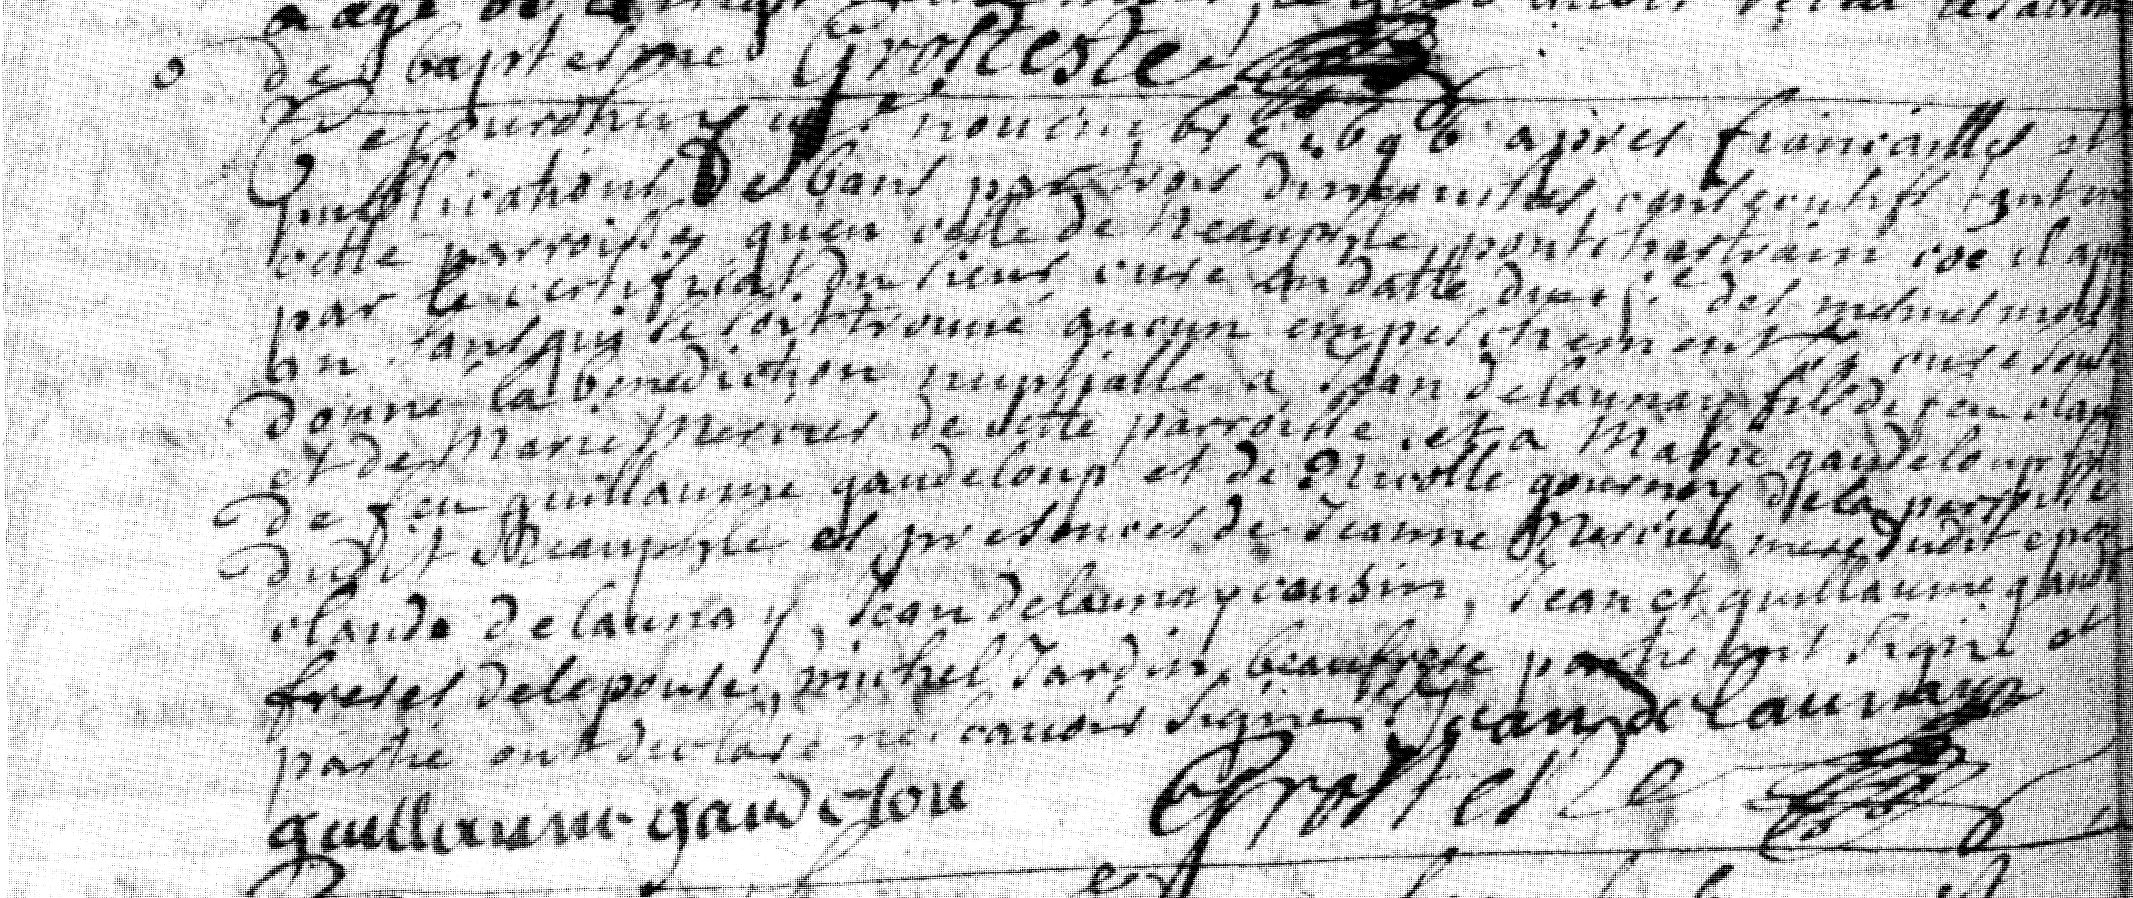 de baptesme Grosteste
Ce jourdhuy novembre 1696 apres fiancailles et
publications de bans par trois dimanches consecutifs tant en
cette parroisse quen celle de neauphle pontchartrain
par le certificat du sieur curé en datte du des mesmes mois
an sans qui se soit trouvé aucun empeschement curé sous
donné la benediction nuptialle a Jean delaunay fils de feu clau
et de Marie de cette parroisse et a Marie gaudeloup fille
de feu guillaume gaudeloup et de Nicolle gournay de la parroisse
dud St Neauphle es presences de Jeanne mere dudit epou
claude delaunay, Jean delaunay cousin, Jean et guillaume gaude
freres de lepouse, michel Jardin beaufrere partie ont signé et
partie ont declaré ne scavoir signer Jean delaunay
guillaume gaudelou Grosteste